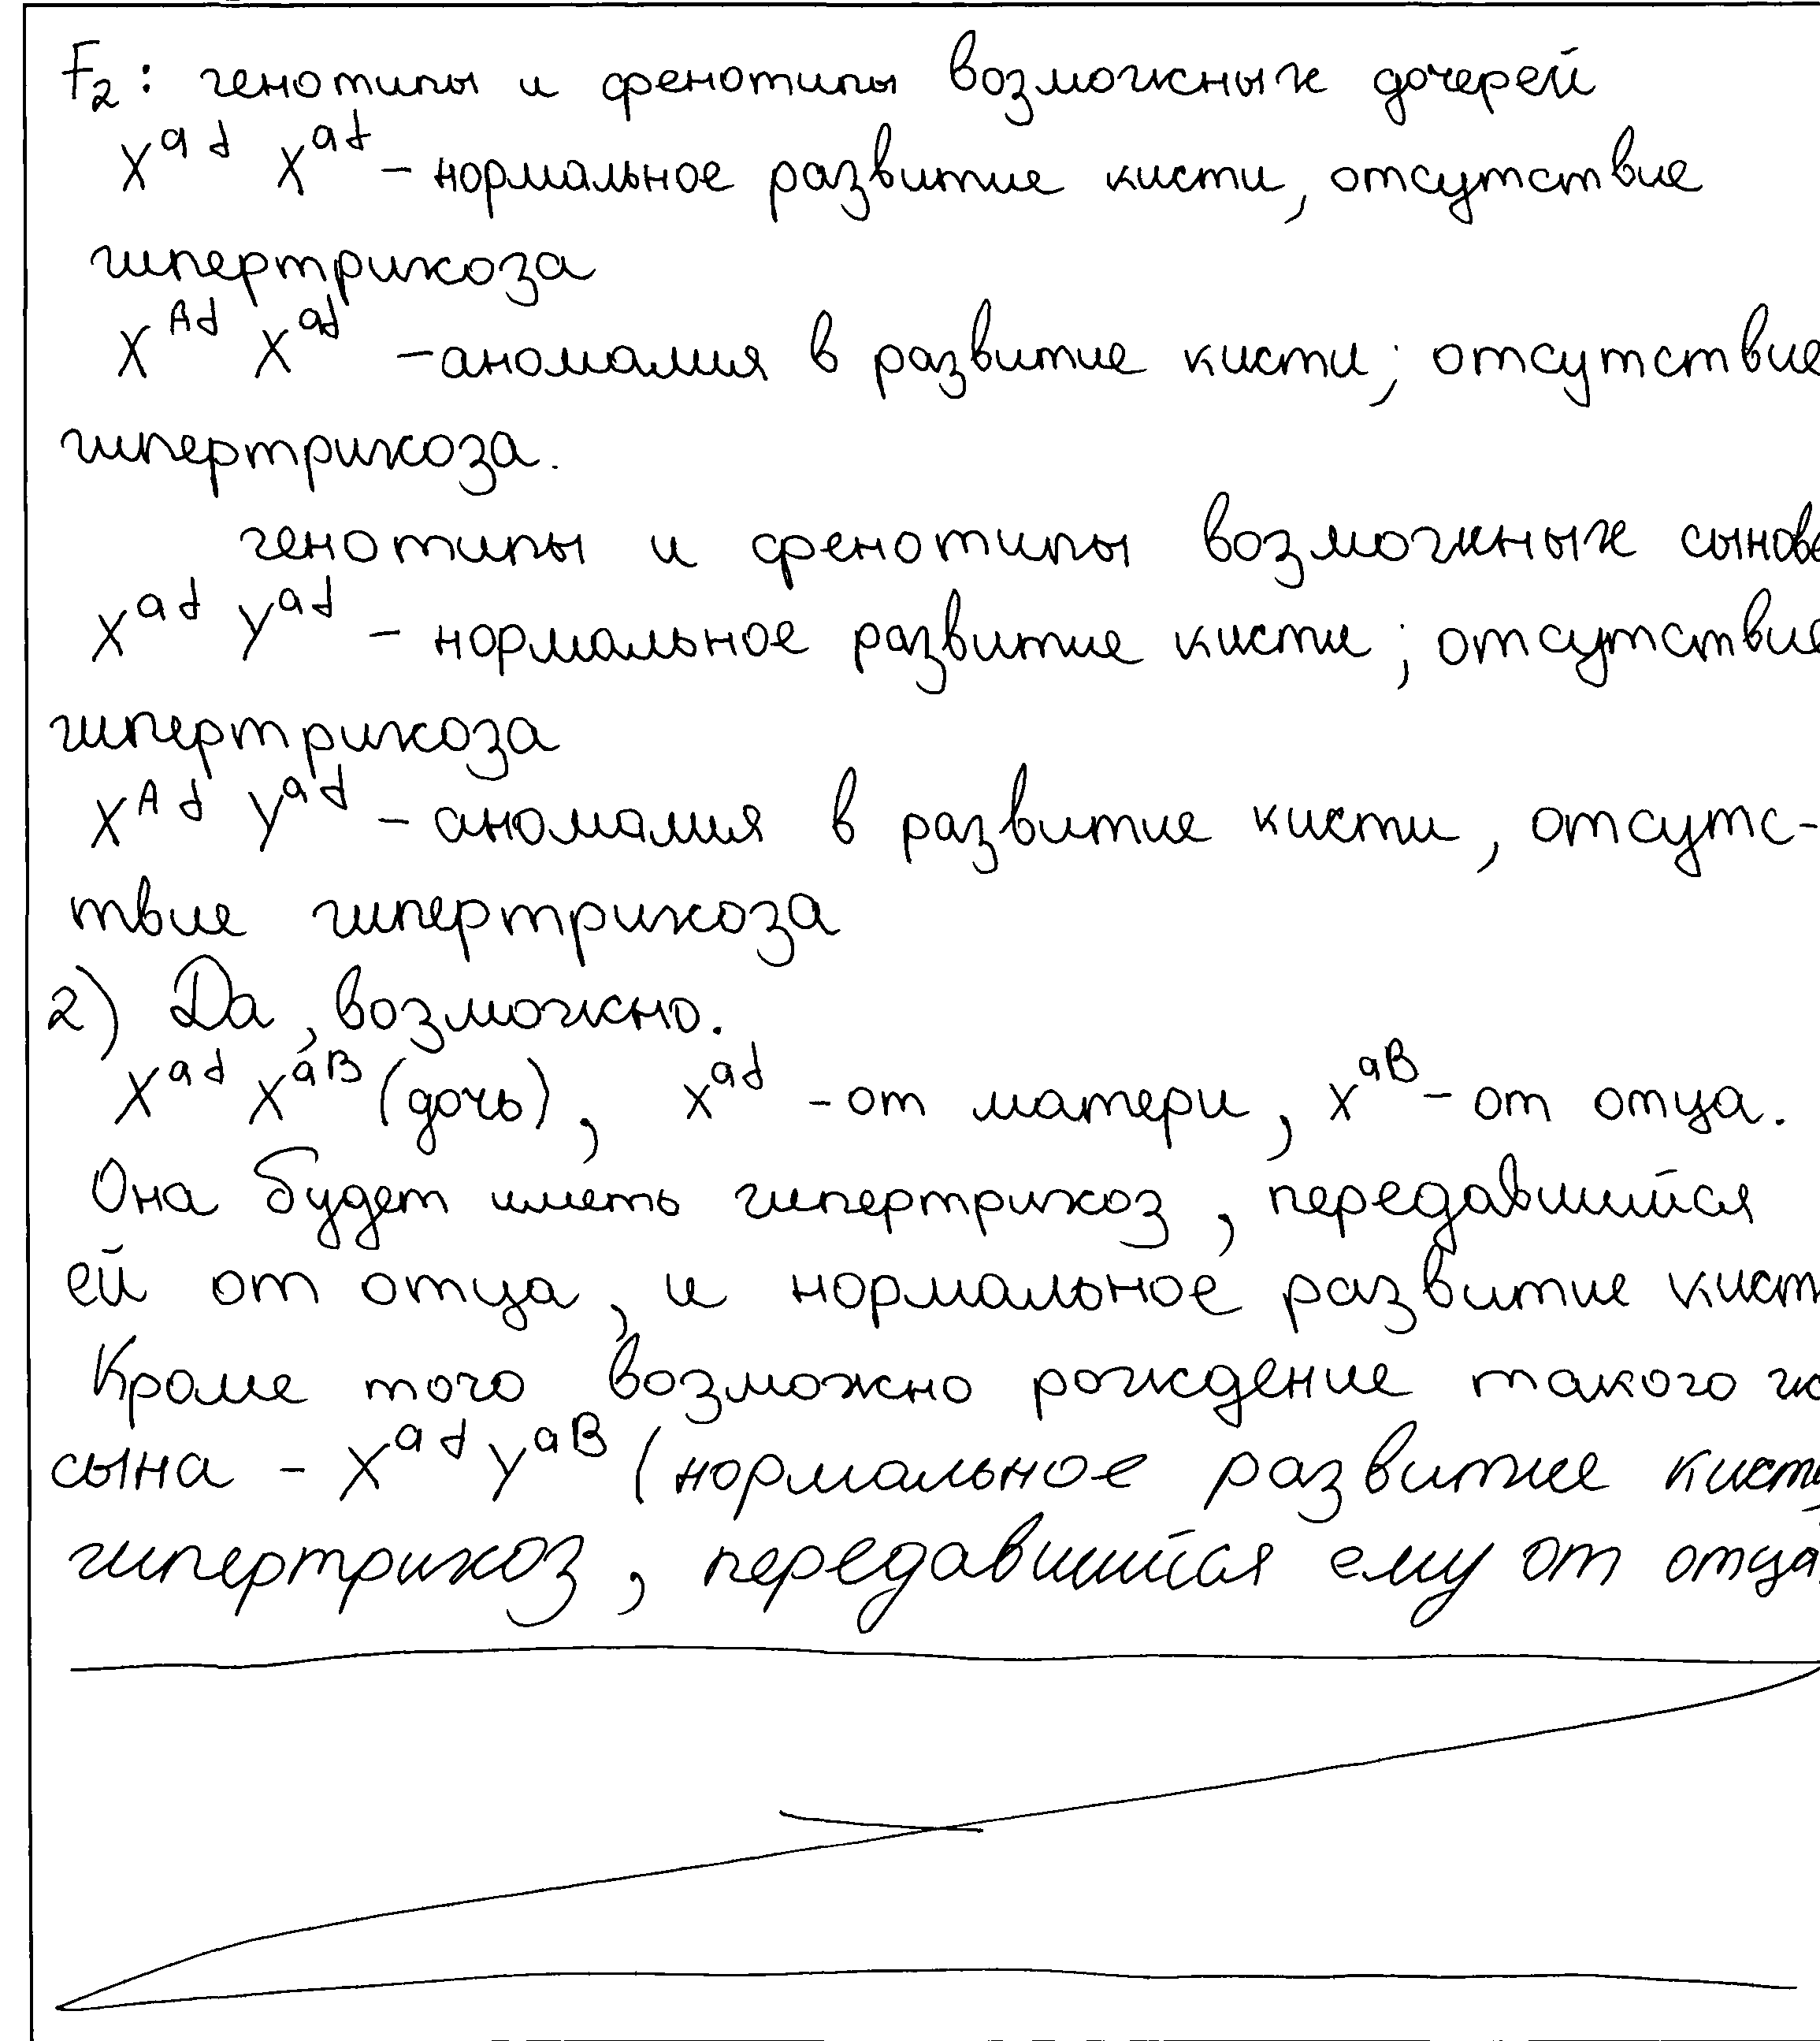 F₂: генотипы и фенотипы возможных дочерей
Xᵃᵈ Xᵃᵈ – нормальное развитие кисти, отсутствие
гипертрихоза
Xᴬᵈ Xᵃᵈ – аномалия в развитие кисти; отсутствие
гипертрихоза.
генотипы и фенотипы возможных сынове
Xᵃᵈ Yᵃᵈ – нормальное развитие кисти; отсутствие
гипертрихоза
Xᴬᵈ Yᵃᵈ – аномалия в развитие кисти, отсутс-
твие гипертрихоза
2) Да, возможно.
Xᵃᵈ Xᵃᴮ (дочь), Xᵃᵈ – от матери, Xᵃᴮ – от отца.
Она будет иметь гипертрихоз, передавшийся
ей от отца, и нормальное развитие кист
Кроме того возможно рождение такого
сына – Xᵃᵈ Yᵃᴮ (нормальное развитие кисти
гипертрихоз, передавшийся ему от отца